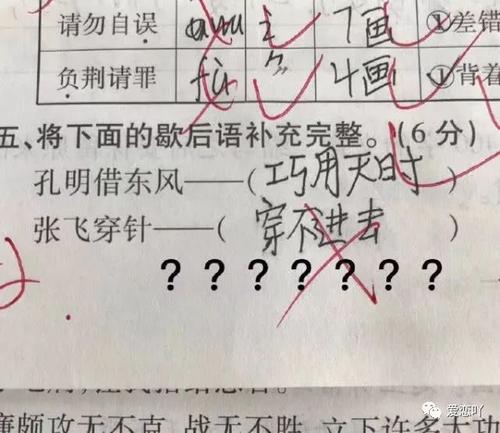 请勿自误 wu 讠 7画 ①差错
负荆请罪 fù ⺈ 4画 ①背着
五、将下面的歇后语补充完整。(6分)
孔明借东风——(巧用天时)
张飞穿针——(穿不进去)
???????
廉颇攻无不克,战无不胜,立下许多大功
爱恋吖